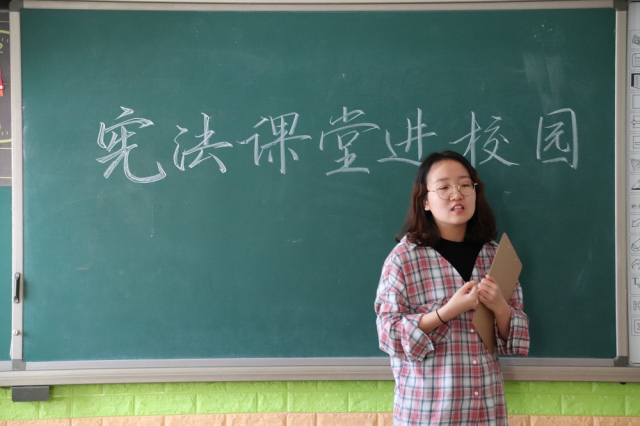 宪法课堂进校园